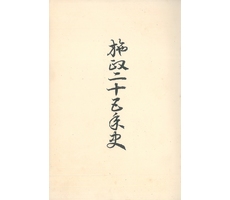 施政二十五年史